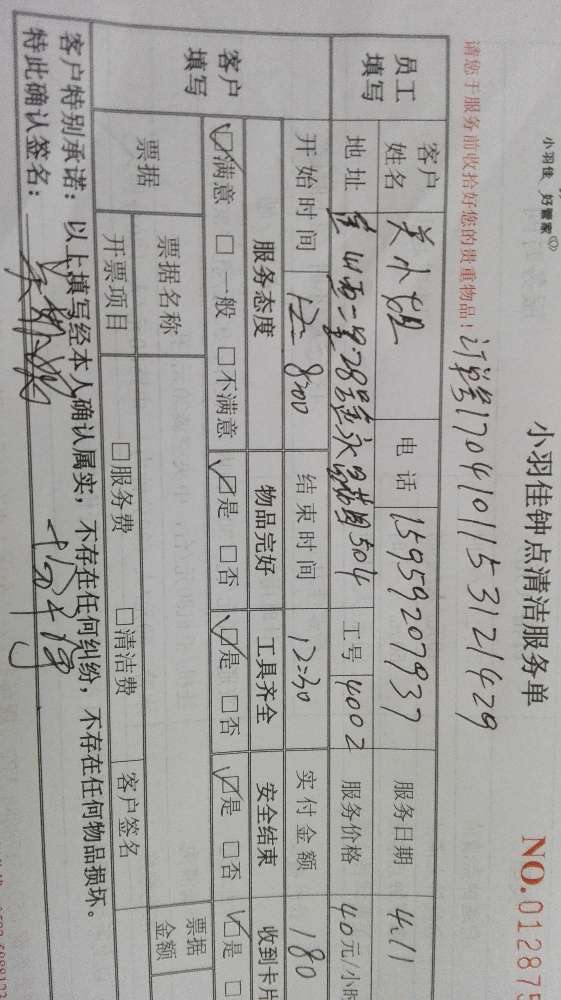 小羽佳 好管家
小羽佳钟点清洁服务单
NO.012875
请您于服务前收拾好您的贵重物品！订单号1704101153121429
员工填写
客户姓名 关小姐 电话 15959207937 服务日期 4.11
地址 28号 504 工号 4002 服务价格 40元/小时
开始时间 8:00 结束时间 12:30 实付金额 180
客户填写
服务态度 物品完好 工具齐全 安全结束 收到卡片
☑满意 □一般 □不满意 ☑是 □否 ☑是 □否 ☑是 □否 ☑是 □
票据 票据名称 票据金额
开票项目 □服务费 □清洁费 客户签名
客户特别承诺：以上填写经本人确认属实，不存在任何纠纷，不存在任何物品损坏。
特此确认签名：